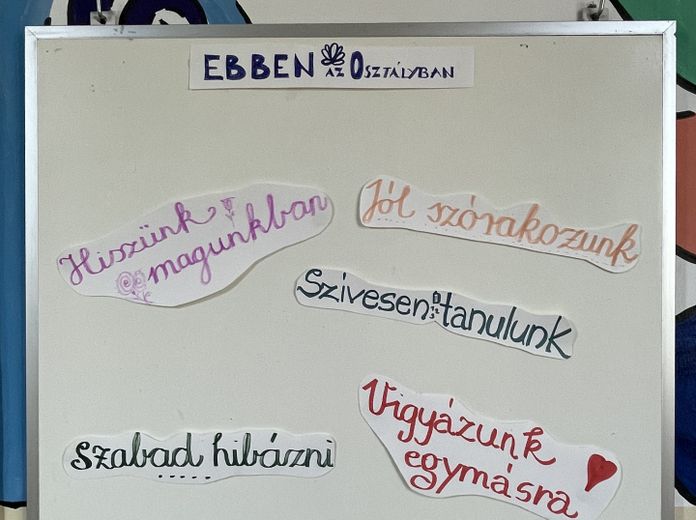 EBBEN AZ OSZTÁLYBAN
Hiszünk
magunkban
Jól szórakozunk
Szivesen tanulunk
szabad hibázni
Vigyázunk
egymásra